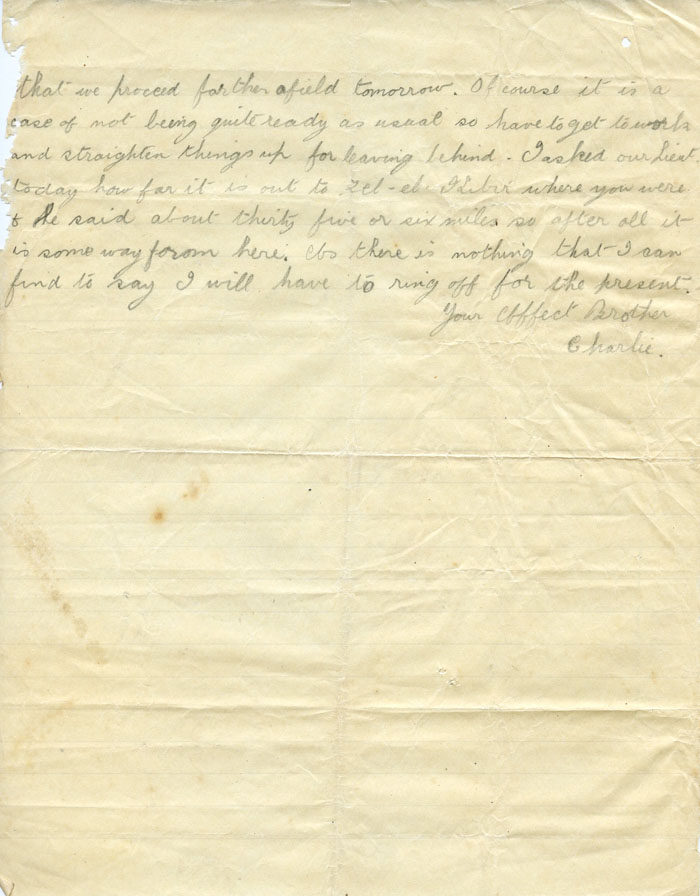 that we proceed farther afield tomorrow. Of course it is a
case of not being quite ready as usual so have to get to work
and straighten things up for leaving behind. I asked our Lieut.
today how far it is out to where you were
& he said about thirty five or six miles so after all it
is some way from here. As there is nothing that I can
find to say I will have to ring off for the present.
Your Affect Brother
Charlie.